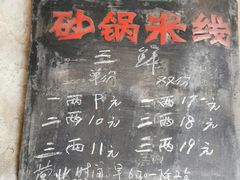 砂锅米线
三鲜
单份 双份
一两9元 一两17元
二两10元 二两18元
三两11元 三两19元
营业时间 早6:30